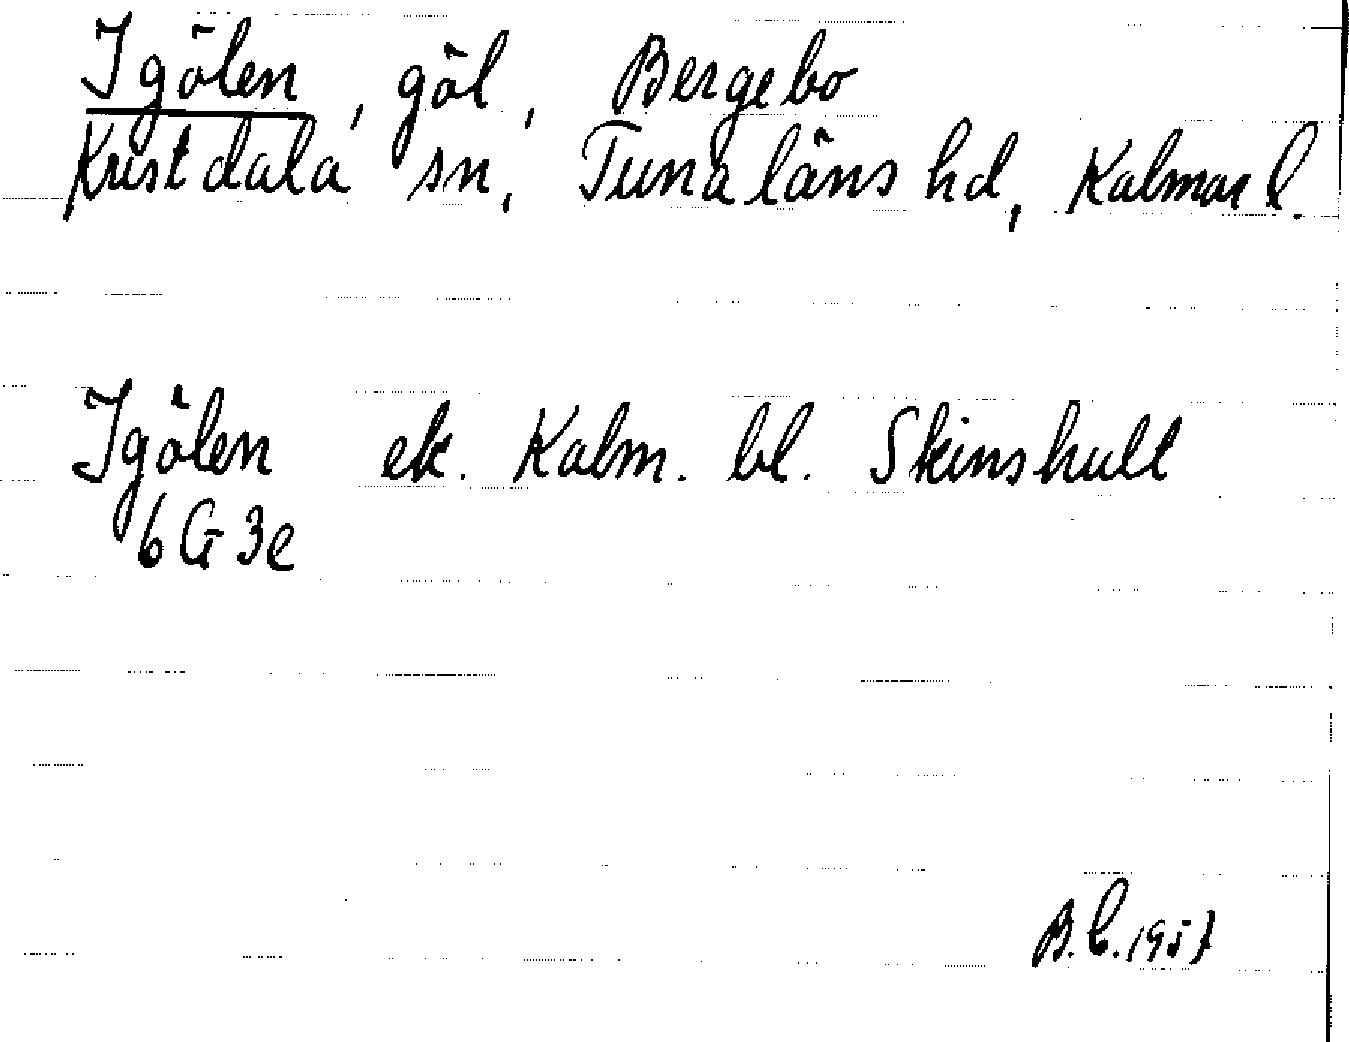 Igölen, göl, Bergebo
Kristdala sn, Tunaläns hd, Kalmar l.
Igölen ek. Kalm. bl. Skinshult
6 G 3e
B.C. 1957